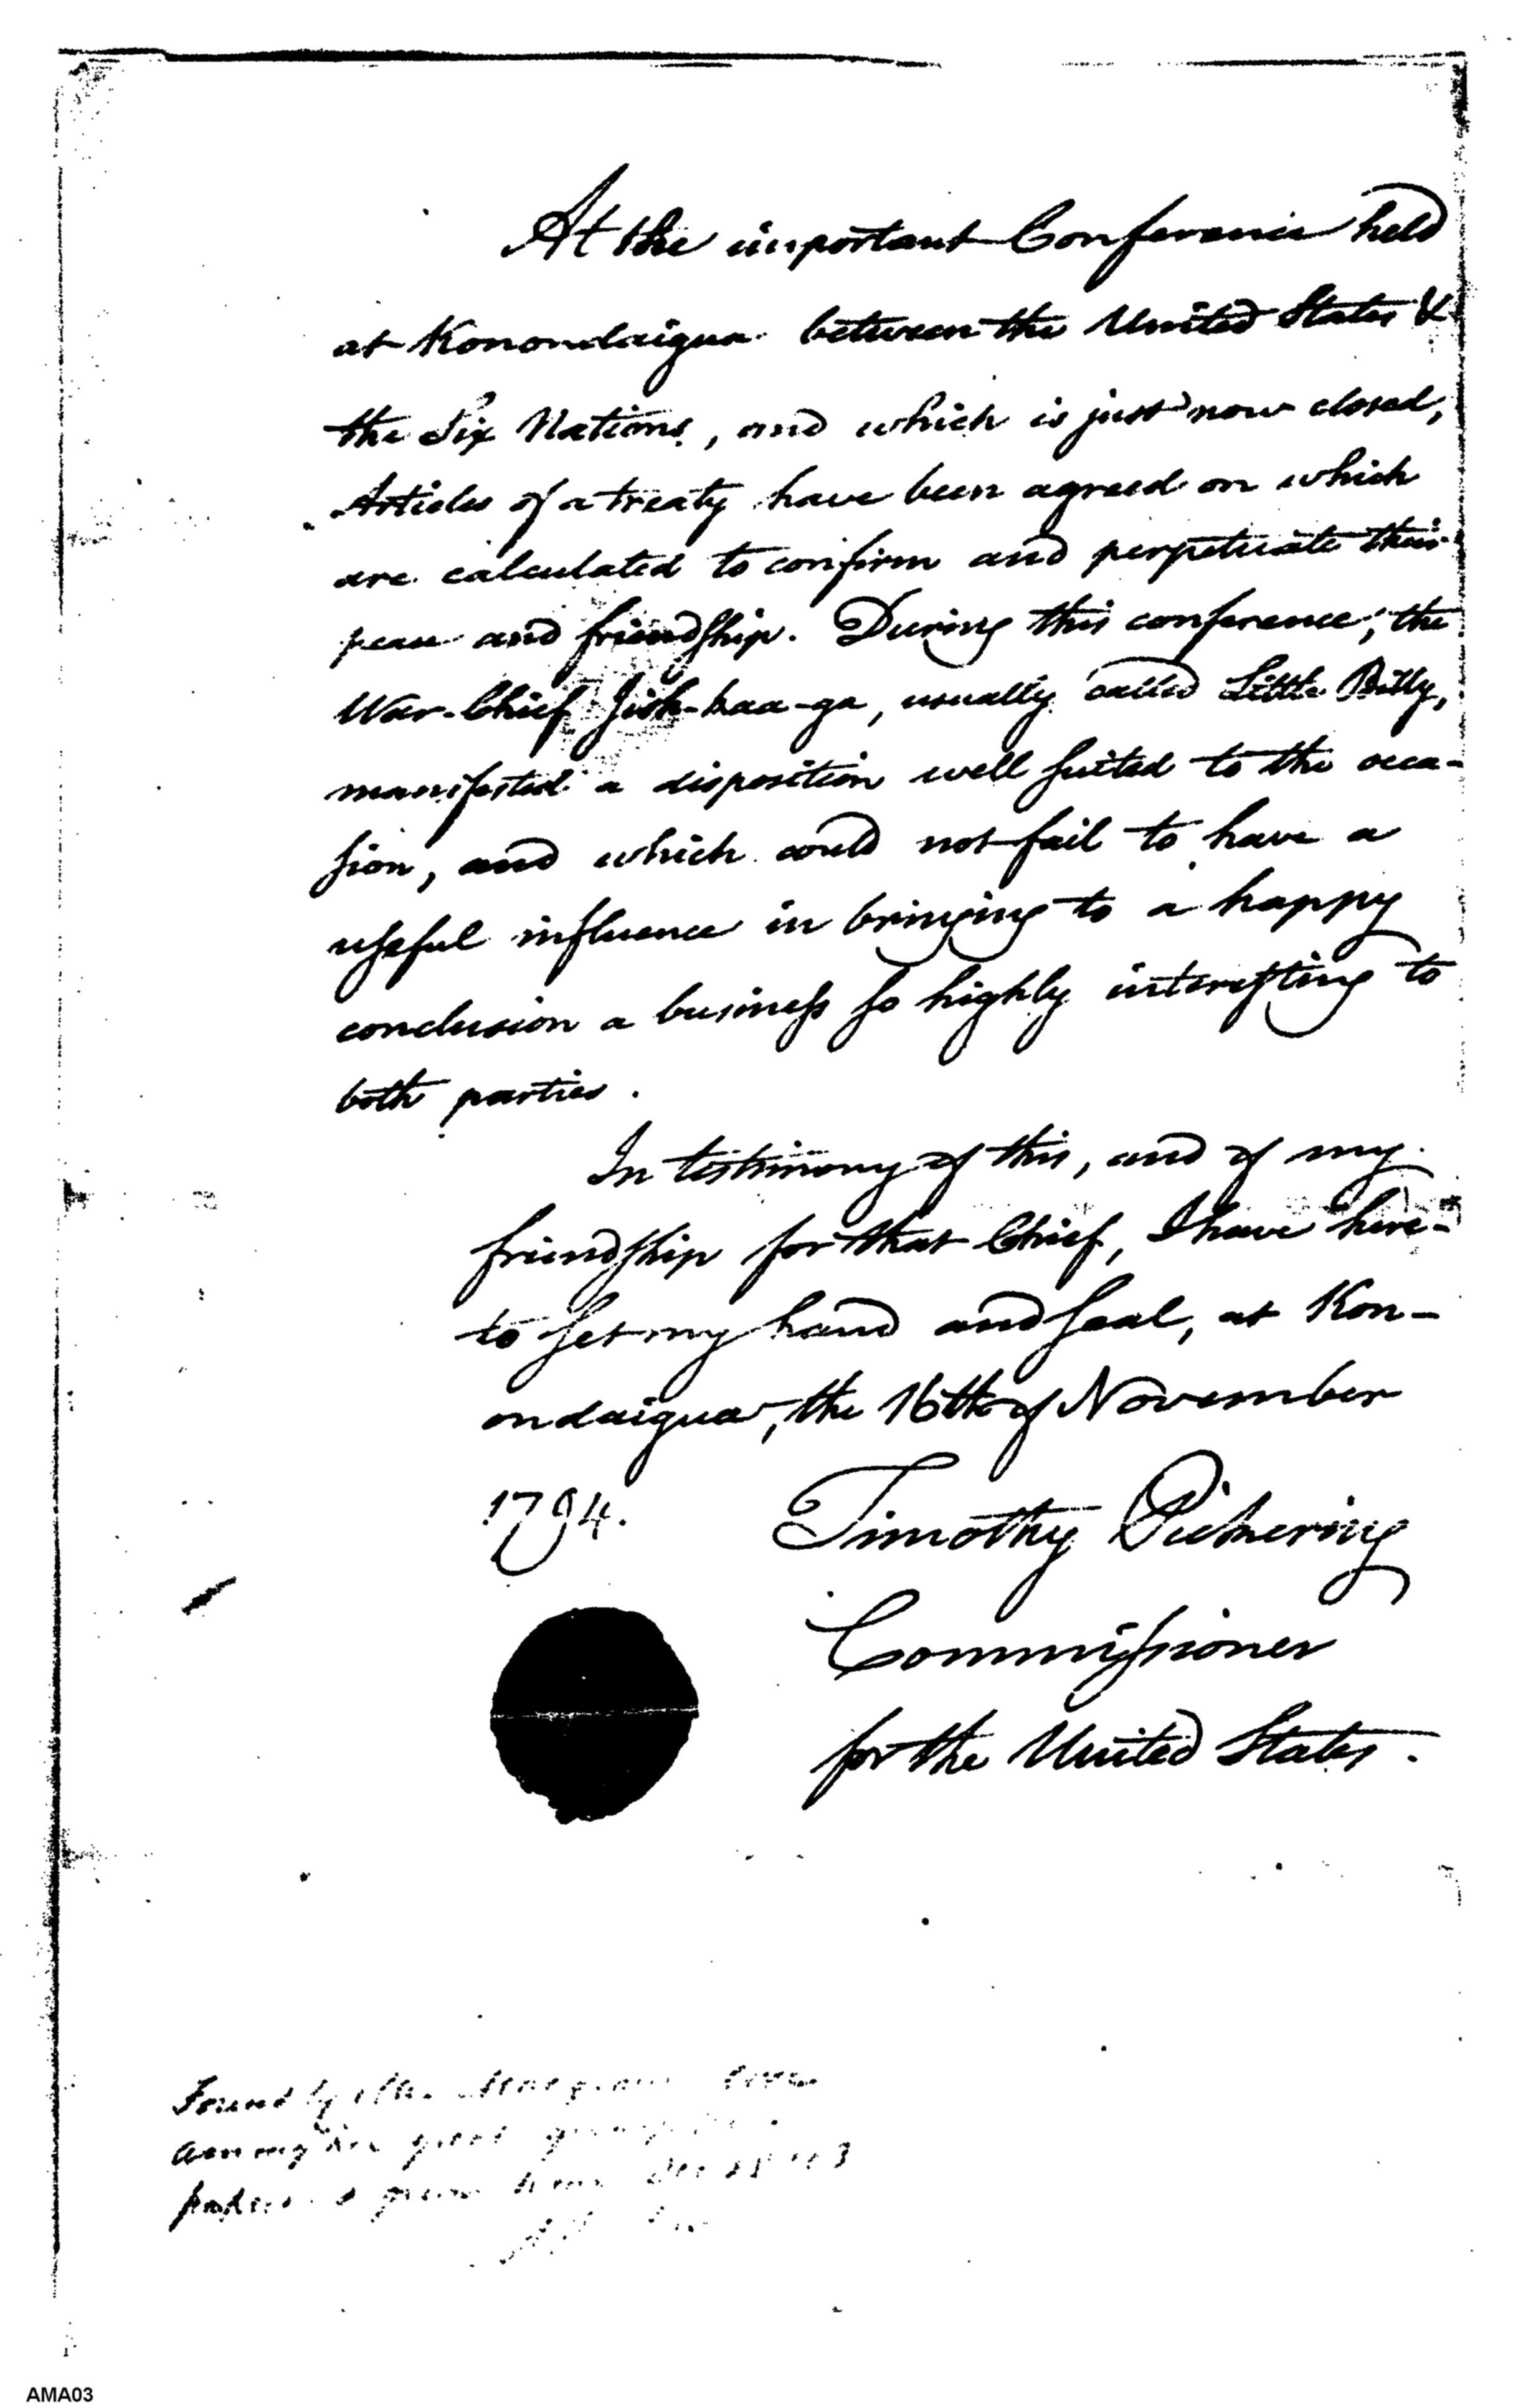 At the important Conference held
at Konondaigua between the United States &
the Six Nations, and which is just now closed,
Articles of a treaty have been agreed on which
are calculated to confirm and perpetuate their
peace and friendship. During this conference, the
War-Chief Jish-kaa-ga, usually called Little Billy,
manifested a disposition well suited to the occa-
sion, and which could not fail to have a
useful influence in bringing to a happy
conclusion a business so highly interesting to
both parties.
In testimony of this, and of my
friendship for that Chief, I have here-
to set my hand and seal, at Kon-
ondaigua, the 16th of November
1794. Timothy Pickering
Commissioner
for the United States.
Found by
among his great
papers &
AMA03